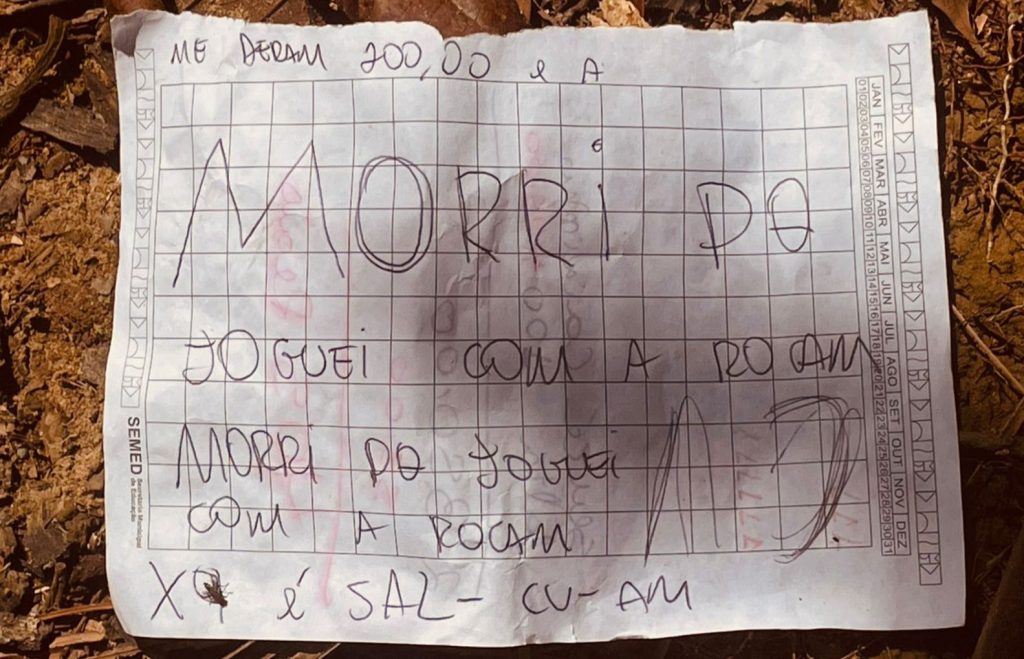 ME DERAM 200,00 e A
MORRi PQ
JOGUEi COM A ROCAM
MORRi PQ JOGUEi
COM A ROCAM
é SAL- CU-AM
SEMED Secretaria Municipal de Educação
JAN FEV MAR ABR MAI JUN JUL AGO SET OUT NOV DEZ
01 02 03 04 05 06 07 08 09 10 11 12 13 14 15 16 17 18 19 20 21 22 23 24 25 26 27 28 29 30 31